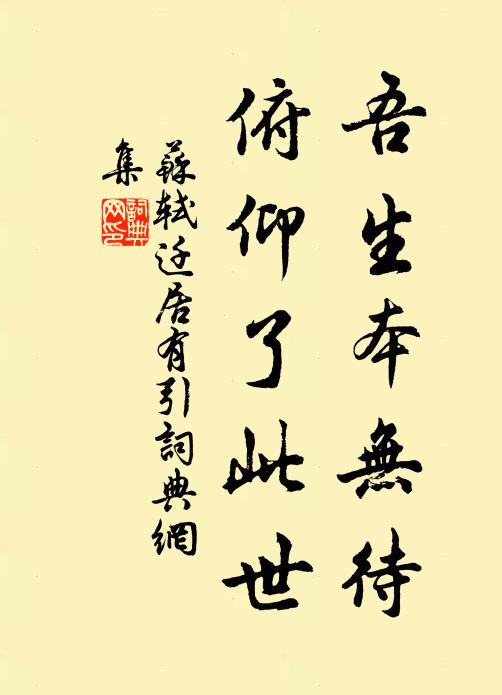 吾生本無待
俯仰了此世
蘇軾遷居有引詞典網
集
詞典網印